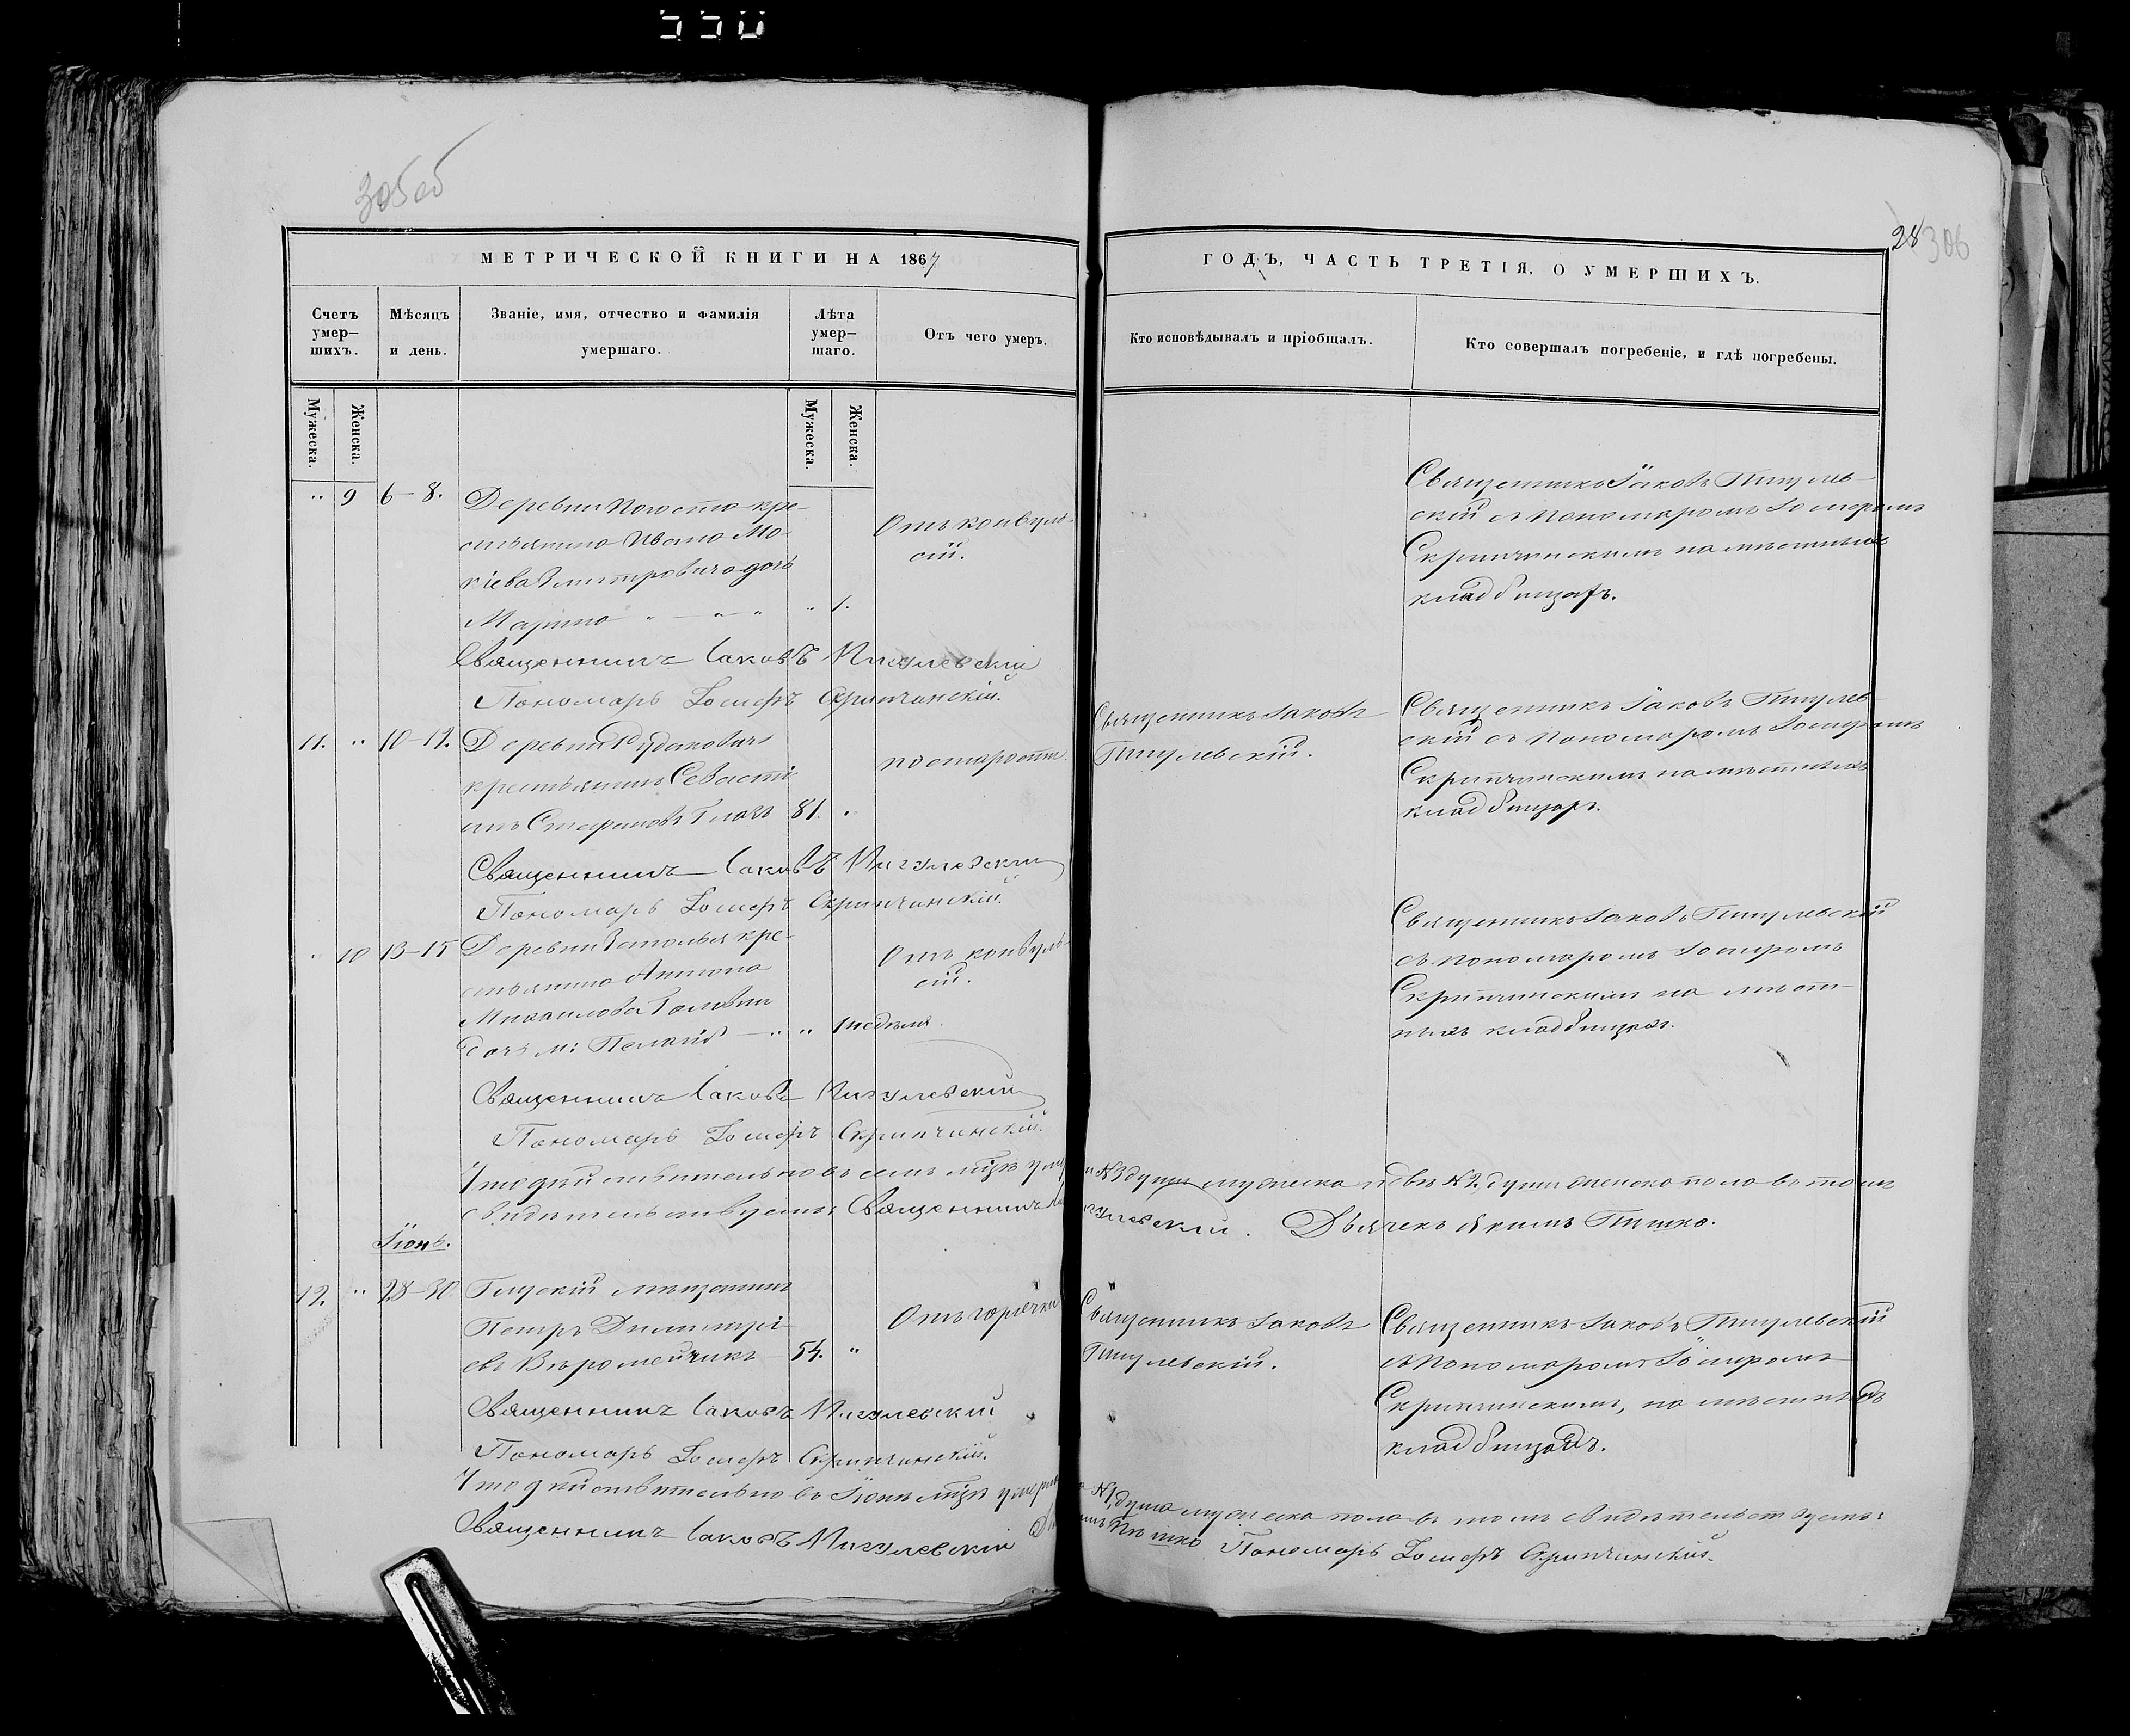 550
305об
28 306
МЕТРИЧЕСКОЙ КНИГИ НА 1867
ГОДЪ, ЧАСТЬ ТРЕТІЯ, О УМЕРШИХЪ.
Счетъ умер-шихъ.
Мѣсяцъ и день.
Званіе, имя, отчество и фамилія умершаго.
Лѣта умер-шаго.
Отъ чего умеръ.
Кто исповѣдывалъ и пріобщалъ.
Кто совершалъ погребеніе, и гдѣ погребены.
Мужеска.
Женска.
Мужеска.
Женска.
" 9 6–8. Деревни кре-
стьянина Ивана Мо-
кіева Дмитровича дочь
Марина 1.
Отъ конвуль-
сій.
Священникъ Іаковъ Пигулев-
скій съ Пономаромъ Іосифомъ
Скрипчинскимъ на мѣстныхъ
кладбищахъ.
Священникъ Іаковъ Пигулевскій
Пономарь Іосифъ Скрипчинскій.
11. " 10–12. Деревни
крестьянинъ Севасті-
анъ Стефановъ 81. "
по старости.
Священникъ Іаковъ
Пигулевскій.
Священникъ Іаковъ Пигулев-
скій съ Пономаромъ Іосифомъ
Скрипчинскимъ на мѣстныхъ
кладбищахъ.
Священникъ Іаковъ Пигулевскій
Пономарь Іосифъ Скрипчинскій.
" 10 13–15 Деревни кре-
стьянина Антона
Михаилова
дочь м: 1 недѣля.
Отъ конвуль-
сій.
Священникъ Іаковъ Пигулевскій
съ пономаромъ Іосифомъ
Скрипчинскимъ на мѣст-
ныхъ кладбищахъ.
Священникъ Іаковъ Пигулевскій
Пономарь Іосифъ Скрипчинскій.
Что дѣйствительно въ семъ мѣсяцѣ души мужеска и двѣ № 2. души женска пола въ томъ
свидѣтельствуемъ: Священникъ Пигулевскій. Дьячекъ
Іюнь.
12. " 28–30 Глускій мѣщанинъ
Петръ Димитрі-
евъ 54. "
Отъ горячки
Священникъ Іаковъ
Пигулевскій.
Священникъ Іаковъ Пигулевскій
съ Пономаромъ Іосифомъ
Скрипчинскимъ, на мѣстныхъ
кладбищахъ.
Священникъ Іаковъ Пигулевскій
Пономарь Іосифъ Скрипчинскій.
Что дѣйствительно въ Іюнѣ мѣсяцѣ № 1, душа мужеска пола въ томъ свидѣтельствуемъ:
Священникъ Іаковъ Пигулевскій Пономарь Іосифъ Скрипчинскій.